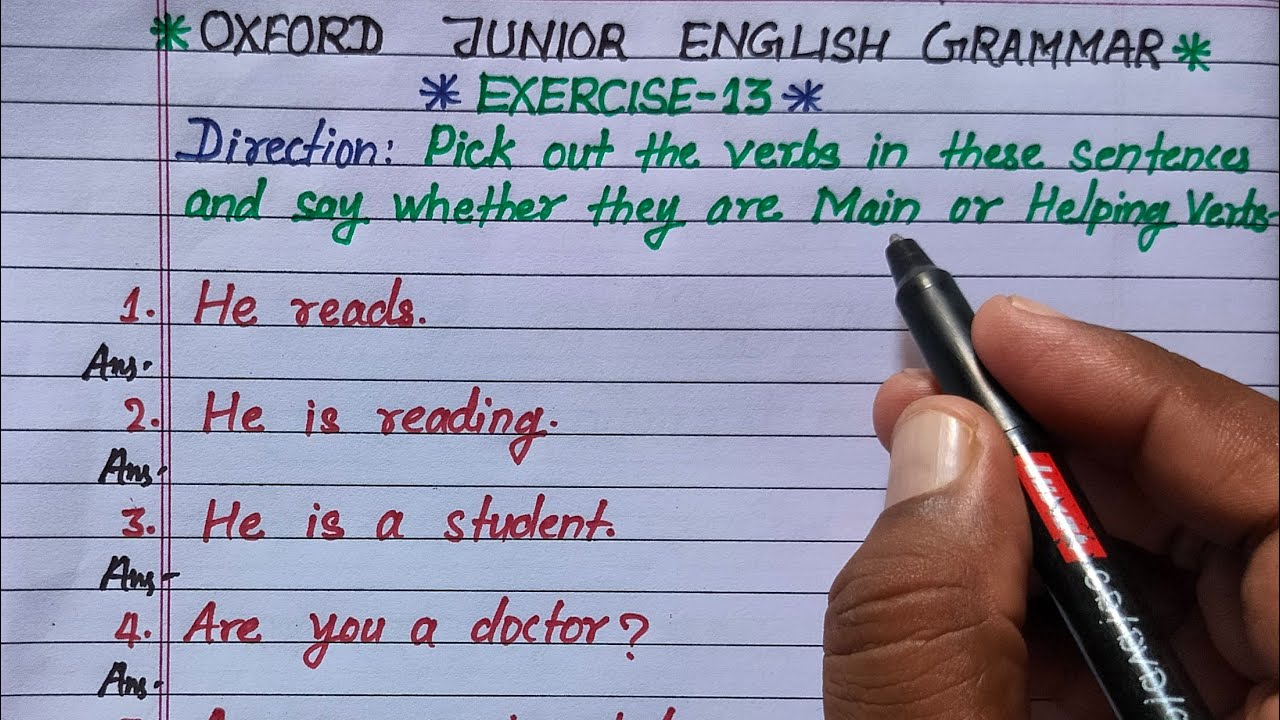 *OXFORD JUNIOR ENGLISH GRAMMAR*
* EXERCISE-13 *
Direction: Pick out the verbs in these sentences
and say whether they are Main or Helping Verbs-
1. He reads.
Ans-
2. He is reading.
Ans-
3. He is a student.
Ans-
4. Are you a doctor?
Ans-